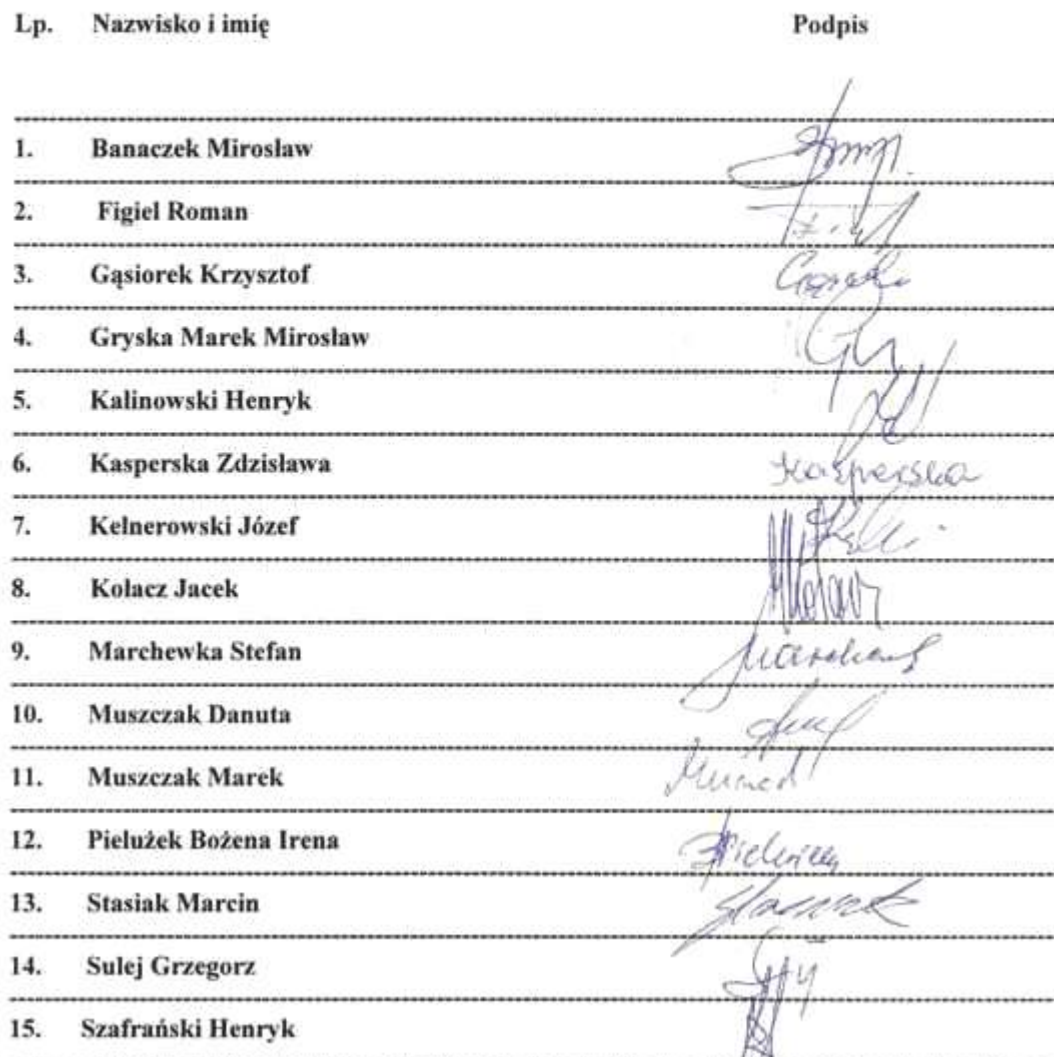 Lp. Nazwisko i imię Podpis
1. Banaczek Mirosław
2. Figiel Roman
3. Gąsiorek Krzysztof
4. Gryska Marek Mirosław
5. Kalinowski Henryk
6. Kasperska Zdzisława Kasperska
7. Kelnerowski Józef
8. Kołacz Jacek
9. Marchewka Stefan
10. Muszczak Danuta
11. Muszczak Marek
12. Pielużek Bożena Irena
13. Stasiak Marcin
14. Sulej Grzegorz
15. Szafrański Henryk